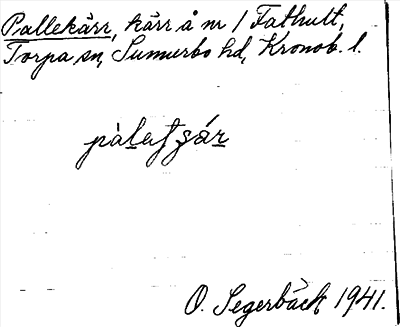 Pallekärr, kärr å nr 1 Fathult,
Torpa sn, Sunnerbo hd, Kronob. l.
O. Segerbäck 1941.